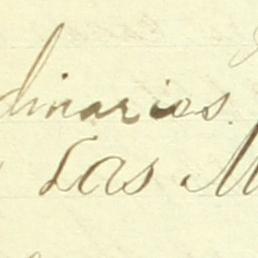 dinarios.
Las M